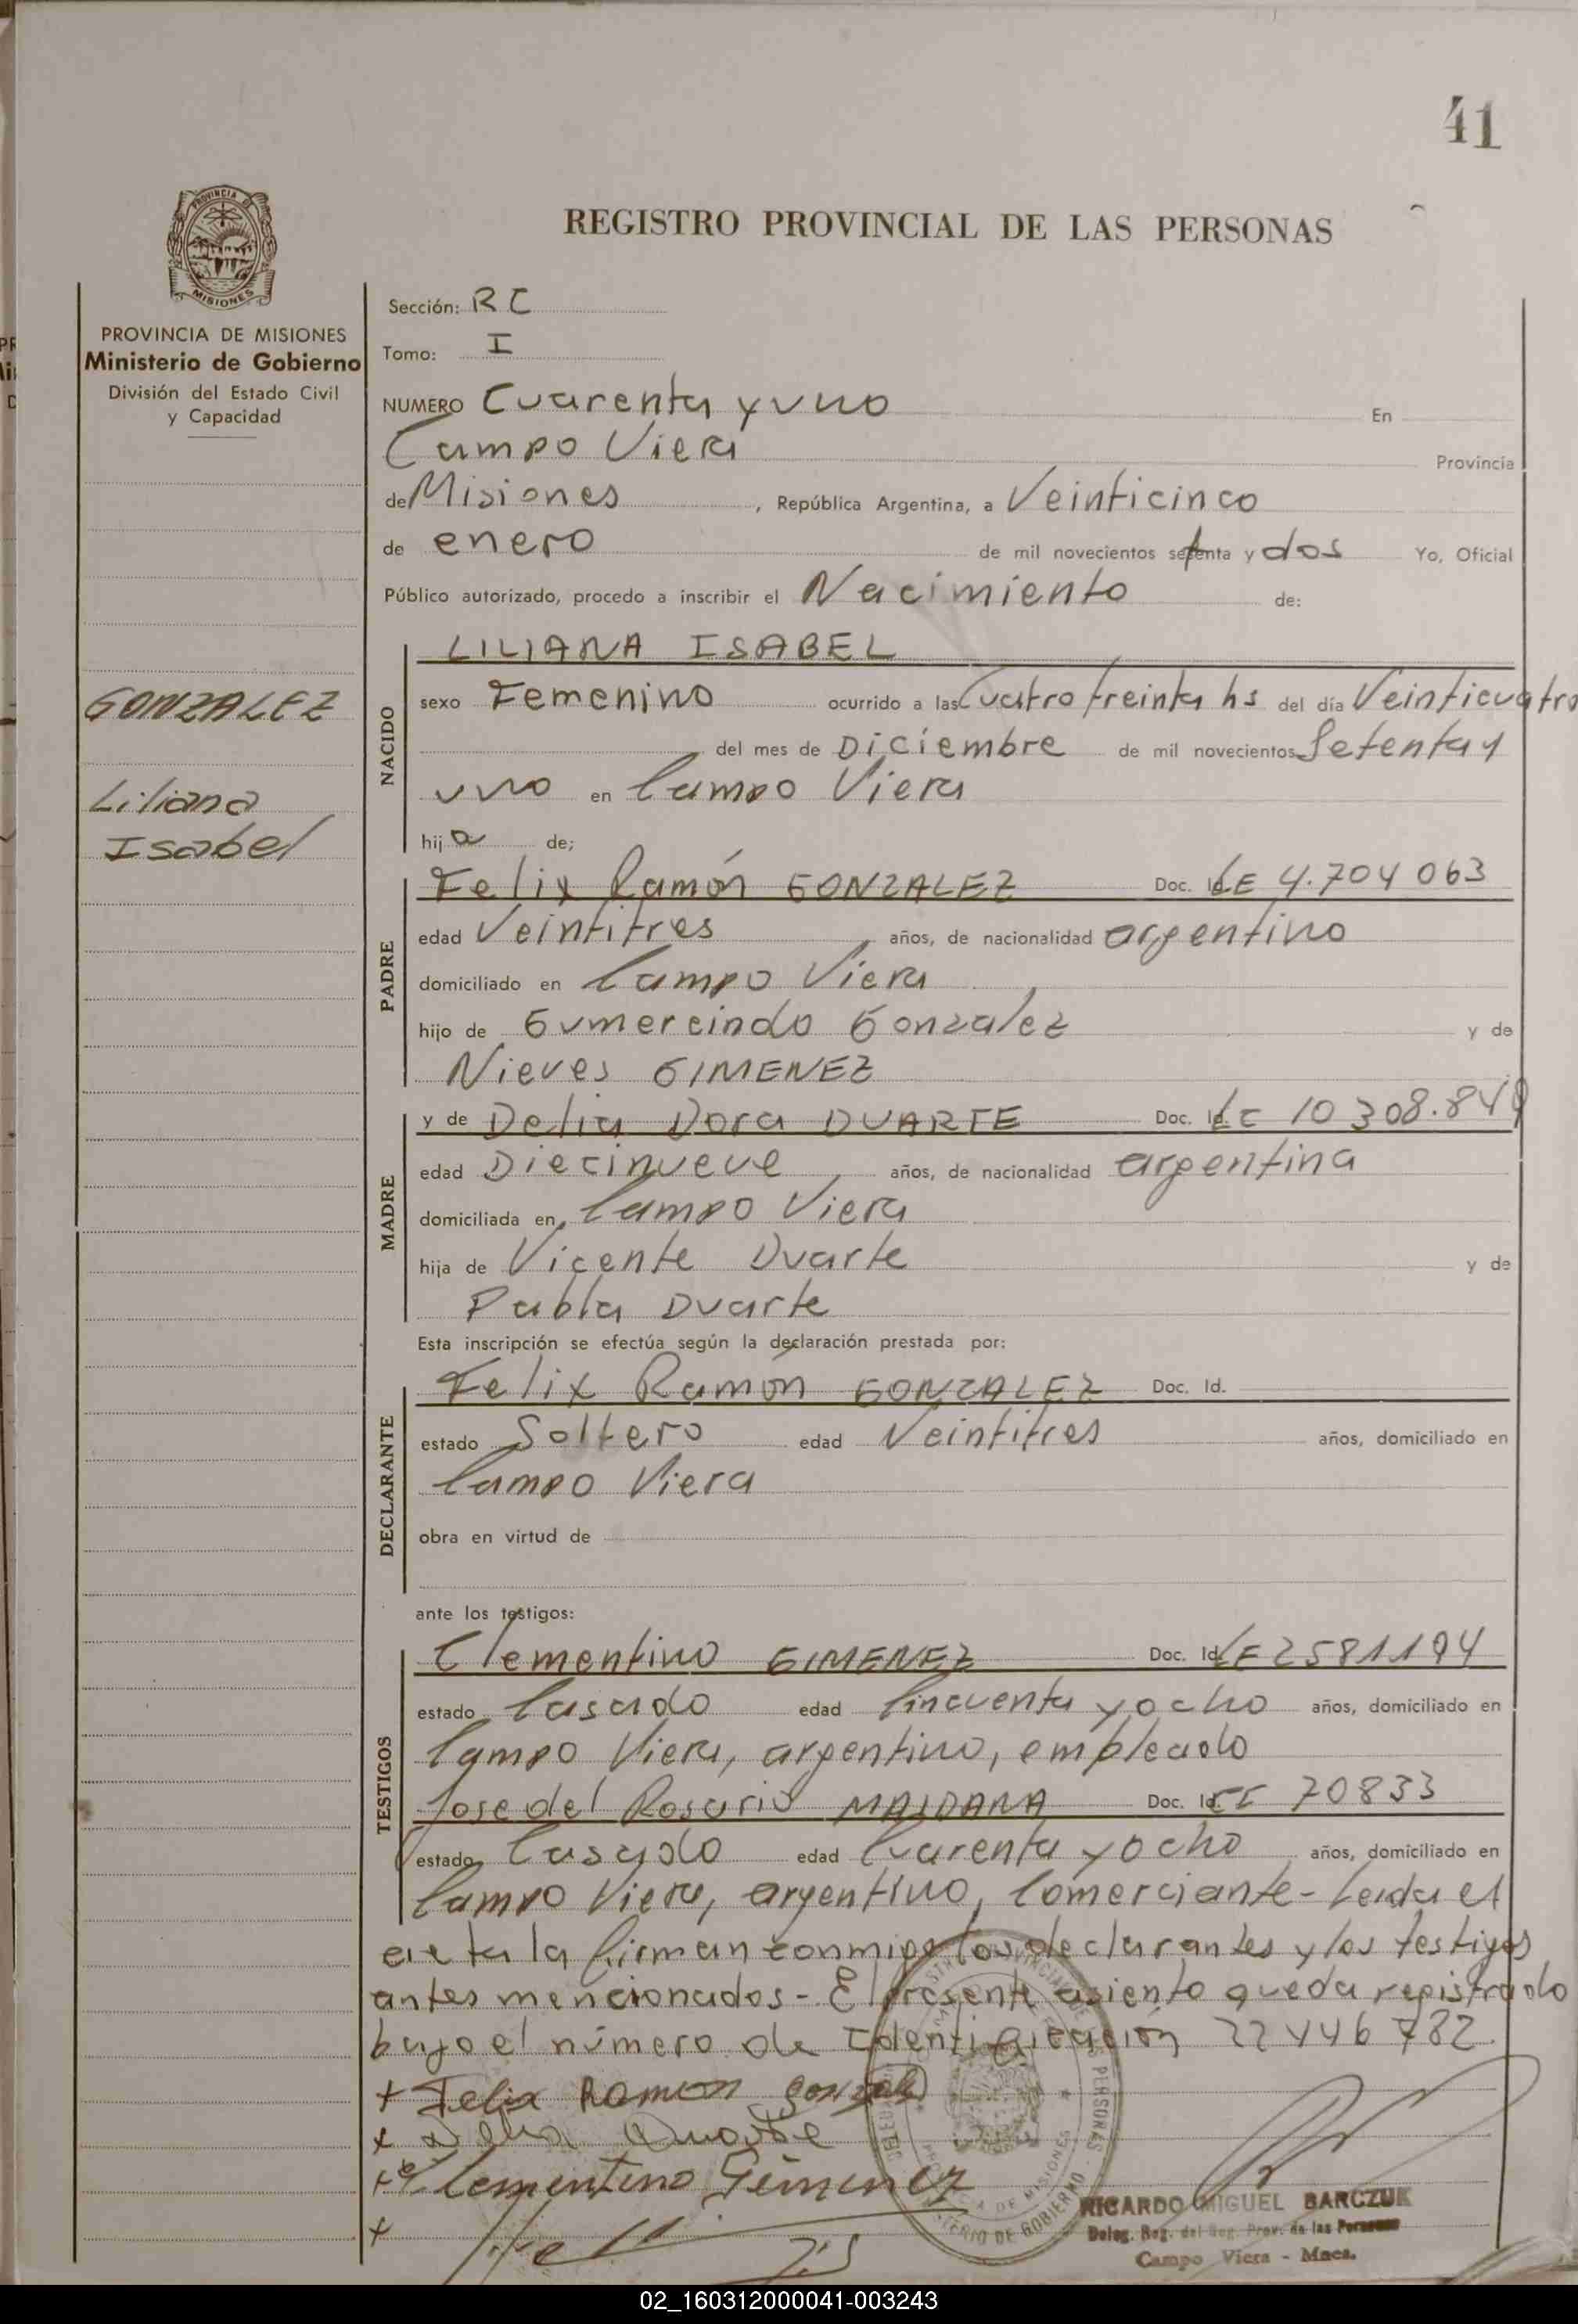 41
REGISTRO PROVINCIAL DE LAS PERSONAS
PROVINCIA DE MISIONES
Ministerio de Gobierno
División del Estado Civil
y Capacidad
GONZALEZ
Liliana
Isabel
Sección: RC
Tomo: I
NUMERO Cuarenta y uno En
Campo Viera Provincia
de Misiones, República Argentina, a Veinticinco
de enero de mil novecientos setenta y dos Yo, Oficial
Público autorizado, procedo a inscribir el Nacimiento de:
NACIDO
LILIANA ISABEL
sexo Femenino ocurrido a las Cuatro treinta hs del día Veinticuatro
del mes de Diciembre de mil novecientos Setenta y
uno en Campo Viera
hija de;
PADRE
Felix Ramón GONZALEZ Doc. Id. LE 4.704 063
edad Veintitres años, de nacionalidad argentino
domiciliado en Campo Viera
hijo de Gumercindo Gonzalez y de
Nieves GIMENEZ
MADRE
y de Delia Dora DUARTE Doc. Id. LC 10 308.849
edad Diecinueve años, de nacionalidad argentina
domiciliada en Campo Viera
hija de Vicente Duarte y de
Pabla Duarte
Esta inscripción se efectúa según la declaración prestada por:
DECLARANTE
Felix Ramón GONZALEZ Doc. Id.
estado Soltero edad Veintitres años, domiciliado en
Campo Viera
obra en virtud de
ante los testigos:
TESTIGOS
Clementino GIMENEZ Doc. Id. LE 2581194
estado Casado edad Cincuenta y ocho años, domiciliado en
Campo Viera, argentino, empleado
Jose del Rosario MAIDANA Doc. Id. 70833
estado Casado edad Cuarenta y ocho años, domiciliado en
Campo Viera, argentino, Comerciante - Leida el
acta la firman conmigo los declarantes y los testigos
antes mencionados - El presente asiento queda registrado
bajo el número de Identificación 22446782
+ Felix Ramon Gonzalez
+ Delia Duarte
+ Clementino Gimenez
+
RICARDO MIGUEL BARCZUK
Deleg. Reg. del Reg. Prov. de las Personas
Campo Viera - Mnes.
02_160312000041-003243